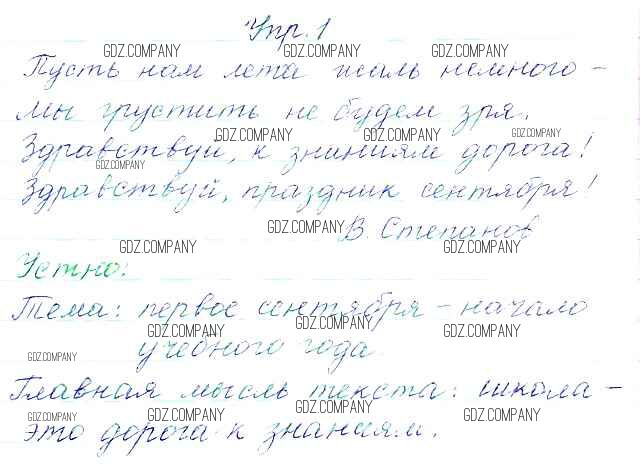 Упр. 1
GDZ.COMPANY GDZ.COMPANY GDZ.COMPANY
Пусть нам лета жаль немного –
Мы грустить не будем зря.
GDZ.COMPANY GDZ.COMPANY GDZ.COMPANY
Здравствуй, к зниниям дорога!
GDZ.COMPANY
Здравствуй, праздник сентября!
GDZ.COMPANY
В. Степанов
GDZ.COMPANY GDZ.COMPANY
Устно:
Тема: первое сентября – начало
GDZ.COMPANY GDZ.COMPANY GDZ.COMPANY
учебного года.
GDZ.COMPANY
Главная мысль текста: школа –
GDZ.COMPANY GDZ.COMPANY GDZ.COMPANY
это дорога к знаниям.